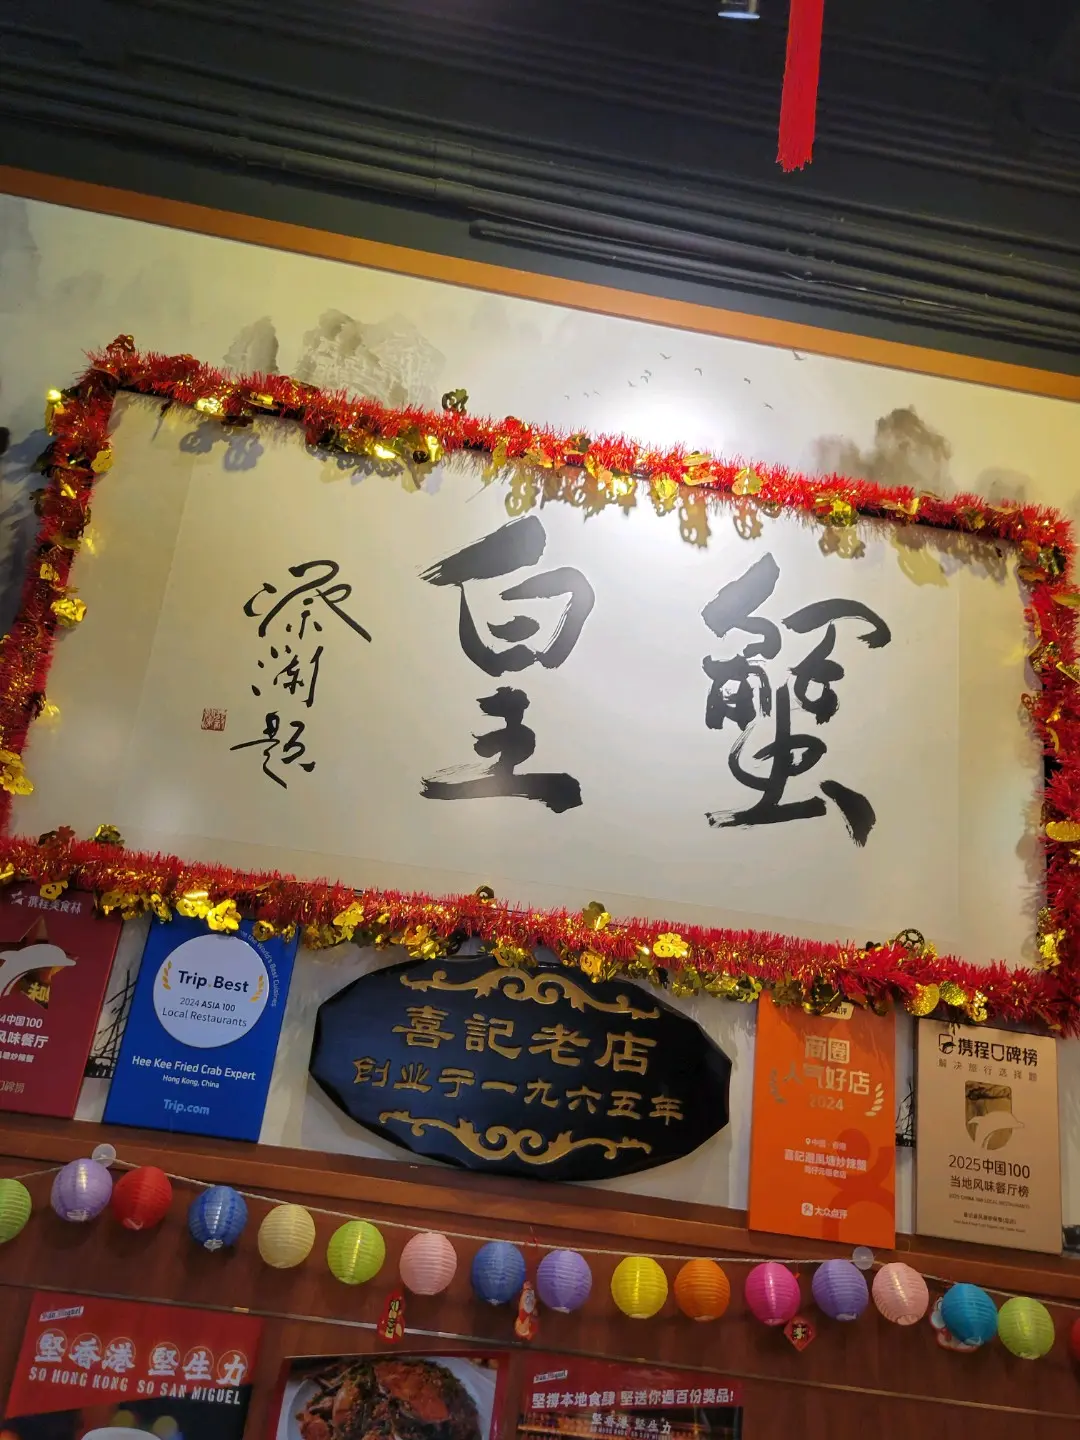 蟹皇
蔡瀾題
携程美食林
中国100
风味餐厅
Trip.Best
2024 ASIA 100
Local Restaurants
Hee Kee Fried Crab Expert
Hong Kong, China
Trip.com
喜記老店
创业于一九六五年
商圈
人气好店
2024
喜記避風塘炒辣蟹
大众点评
携程口碑榜
解决旅行选择题
2025中国100
当地风味餐厅榜
San Miguel
堅香港 堅生力
SO HONG KONG SO SAN MIGUEL
San Miguel
堅撐本地食肆 堅送你過百份獎品!
堅香港 堅生力